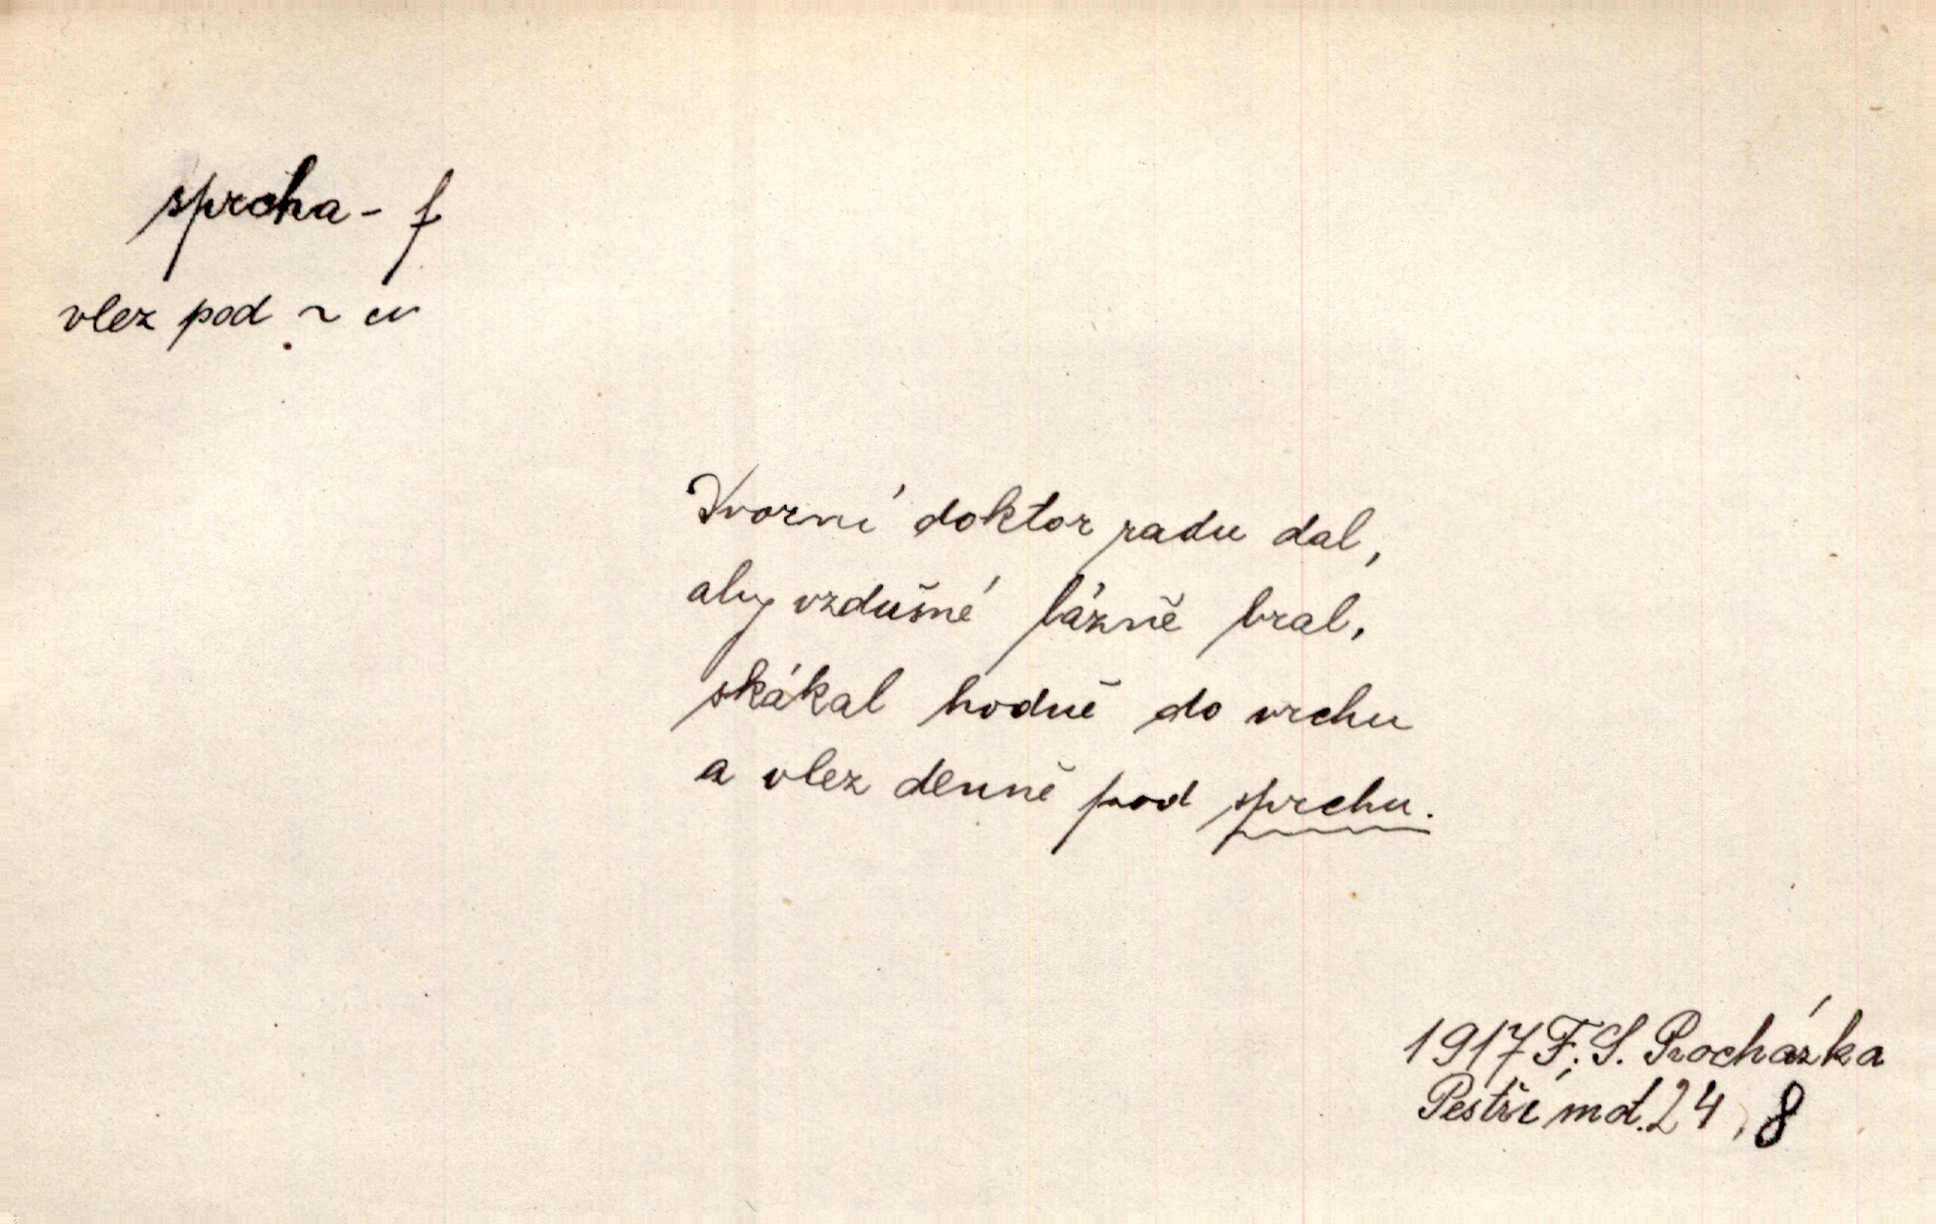 sprcha - f
vlez pod ~ u
Dvorní doktor radu dal,
aby vzdušné lázně bral,
skákal hodně do vrchu
a vlez denně pod sprchu.
1917 F. S. Procházka
Pestří md. 24, 8